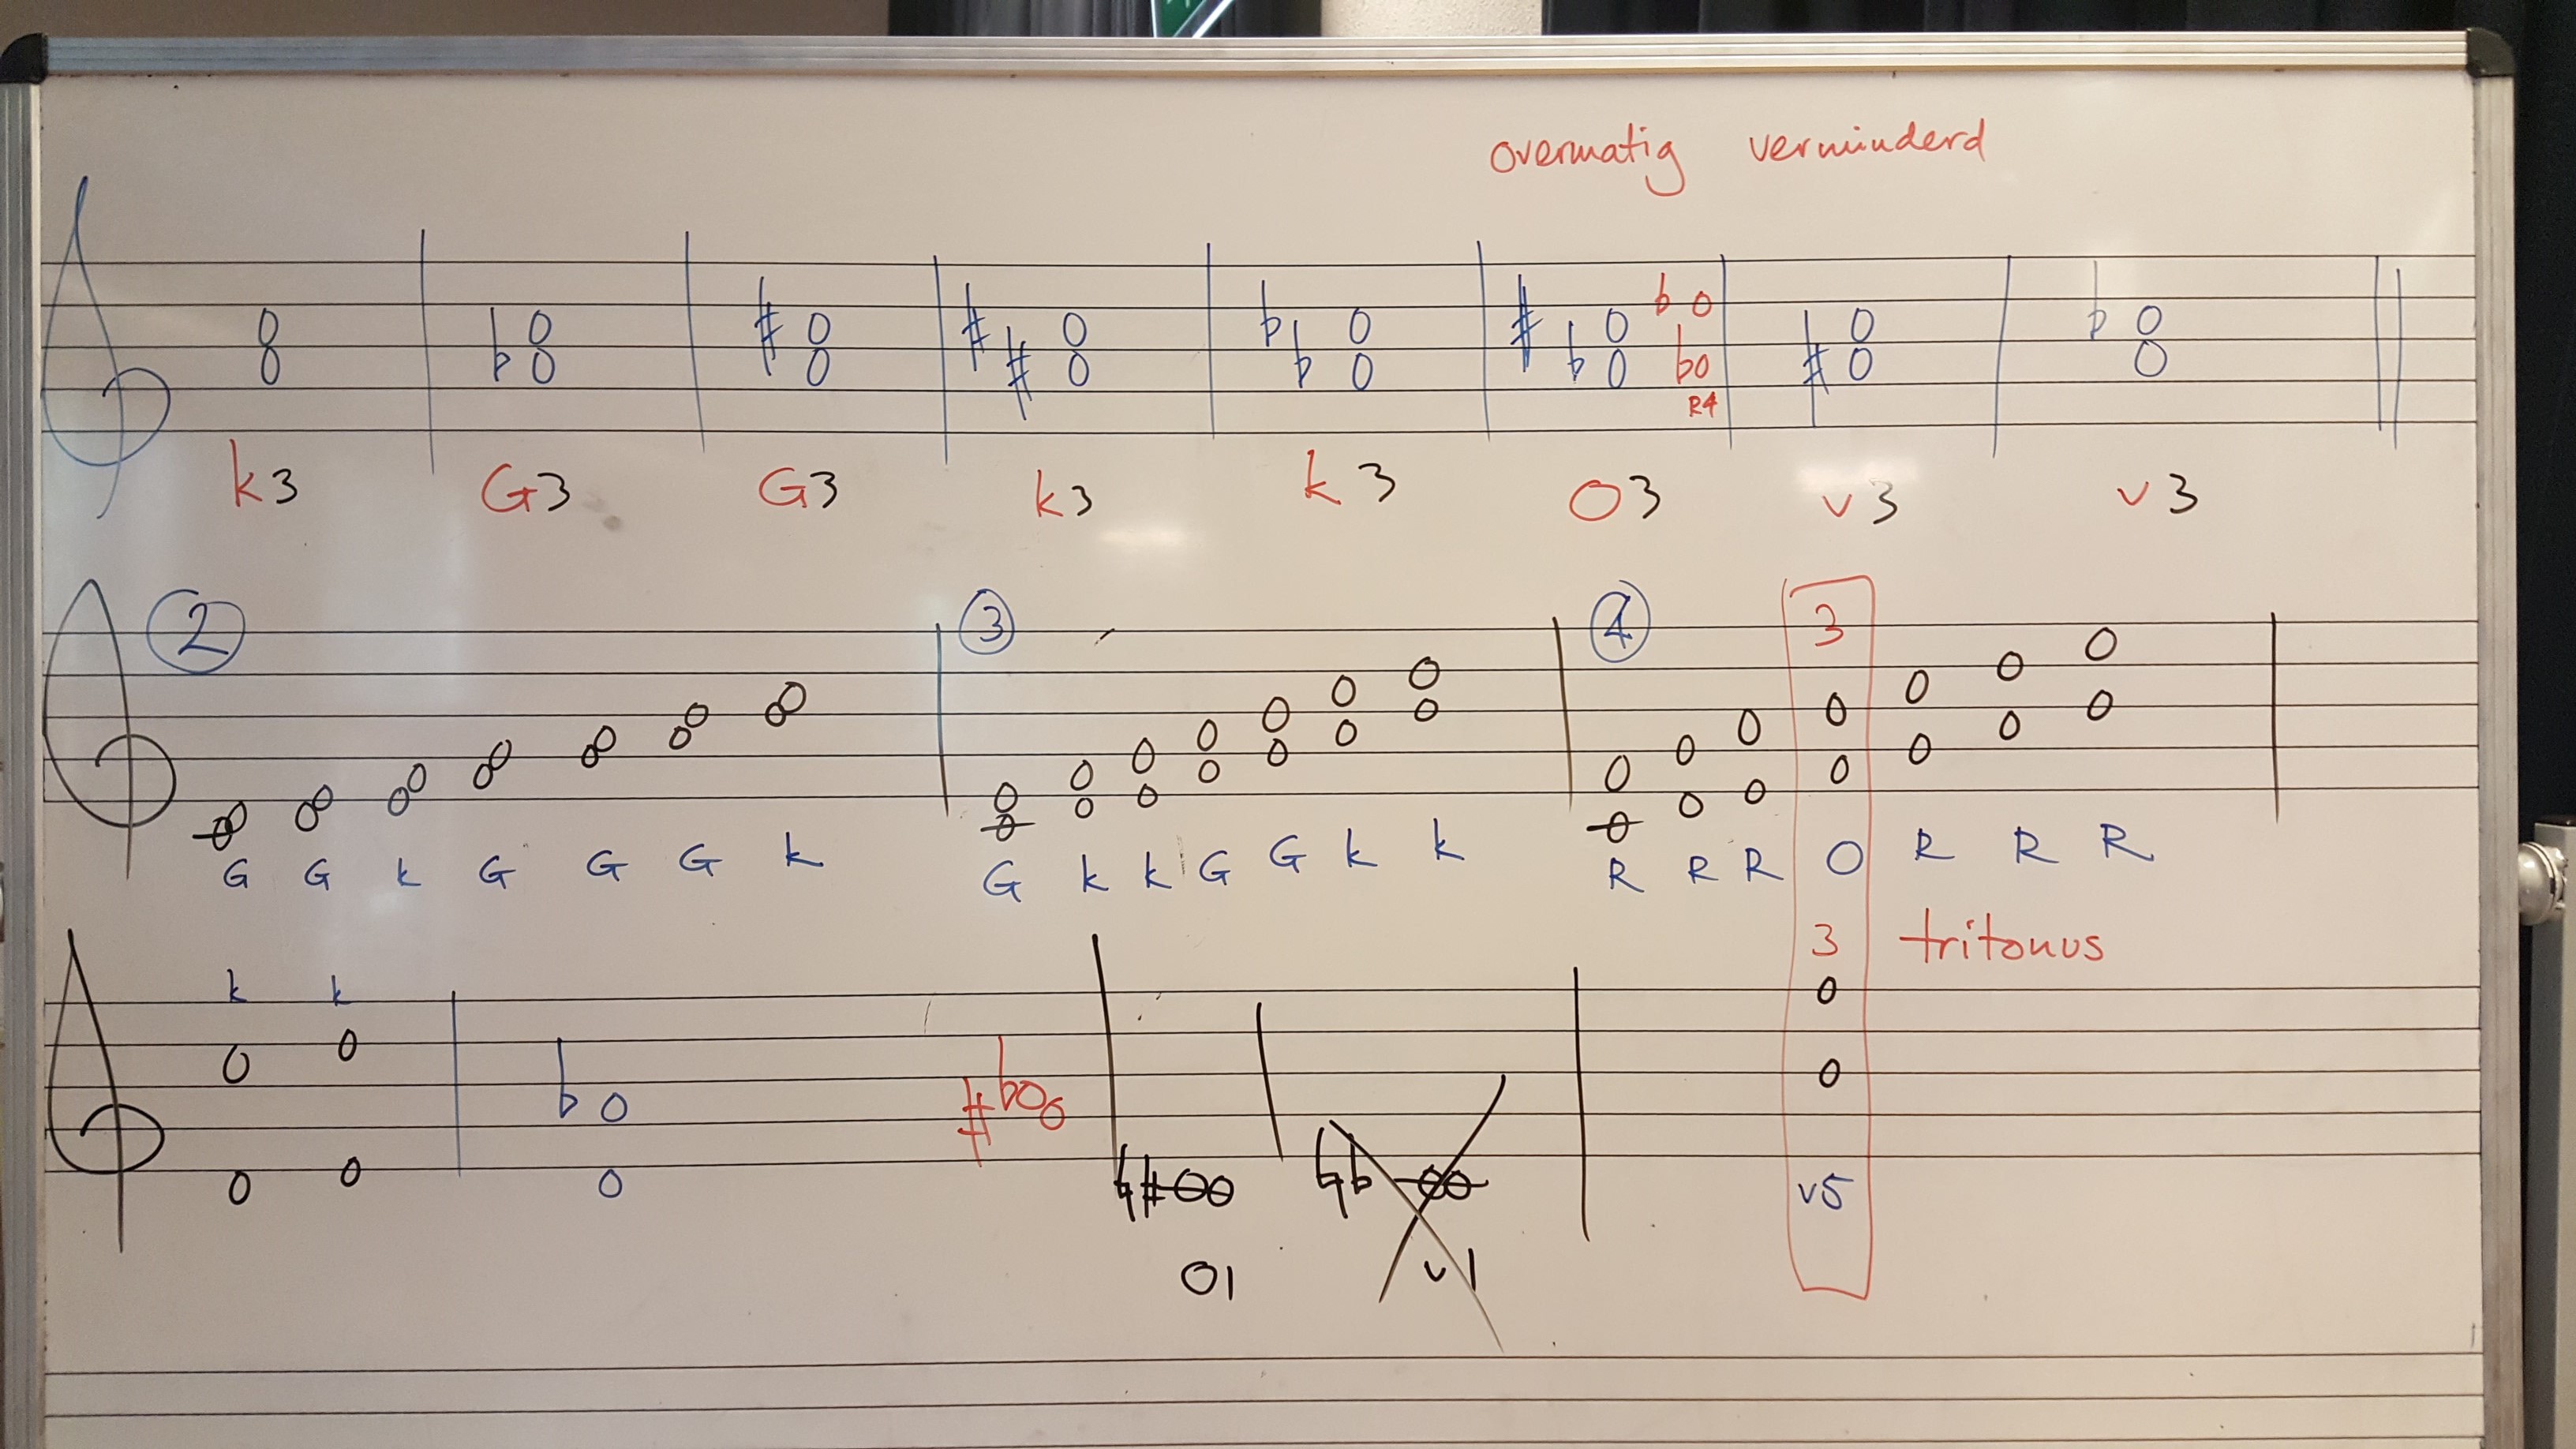 overmatig verminderd
R4
k3 G3 G3 k3 k3 O3 v3 v3
2 3 4 3
G G k G G G k G k k G G k k R R R O R R R
3 tritonus
k k
v5
O1 v1